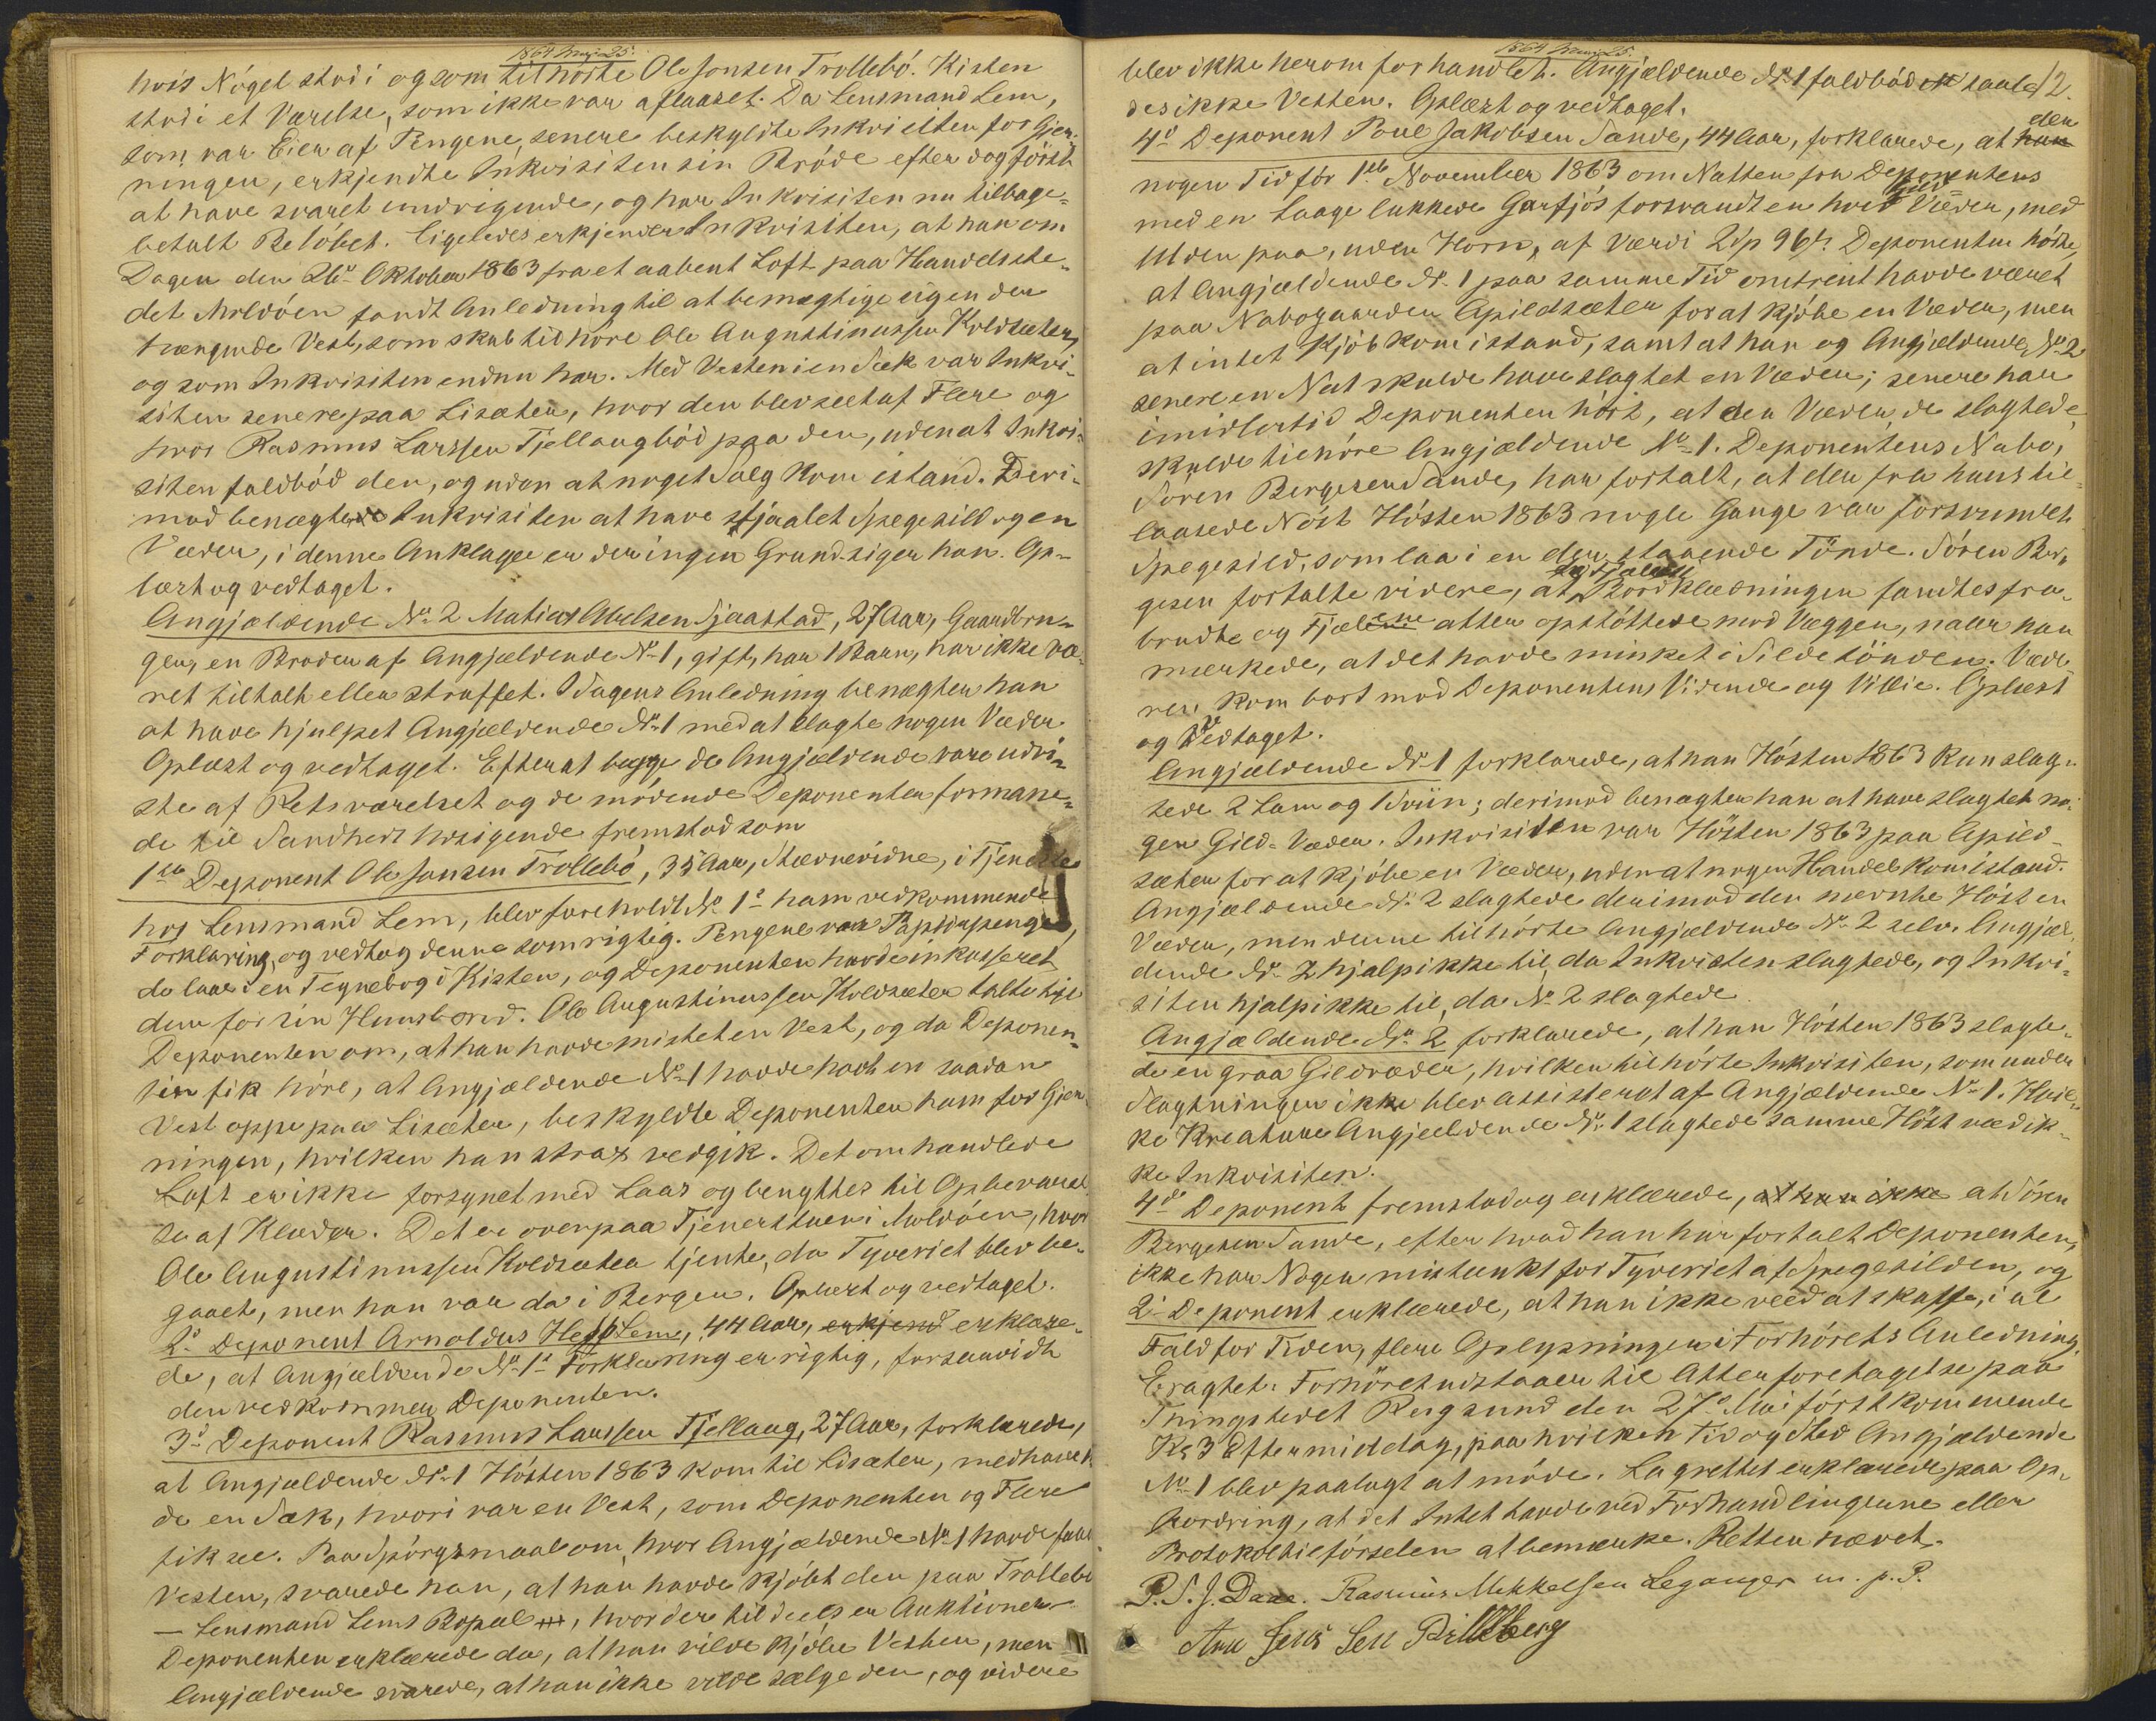 1864 Mai 25.
hvis Nøgel stod i og som tilhørte Ole Jonsen Trollebø. Kisten
stod i et Værelse, som ikke var aflaaset. Da Lensmand Lem,
som var Eier af Pengene, senere beskyldte Inkvisiten for Gjer-
ningen, erkjendte Inkvisiten sin Brøde efter dog først
at have svaret undvigende, og har Inkvisiten nu tilbage-
betalt Beløbet. Ligeledes erkjender Inkvisiten, at han om
Dagen den 26de Oktober 1863 fra et aabent Loft paa Handelsste-
det Moldøen fandt Anledning til at bemægtige sig en der
hængende Vest, som skal tilhøre Ole Augustinussen Koldsæter,
og som Inkvisiten endnu har. Med Vesten i en Sæk var Inkvi-
siten senere paa Lisæter, hvor den blev seet af Flere og
hvor Rasmus Larssen Tjellaug bød paa den, uden at Inkvi-
siten faldbød den, og uden at noget Salg kom istand. Deri-
mod benægtede Inkvisiten at have stjaalet Spegesild og en
Væder, i denne Anklage er der ingen Grund siger han. Op-
læst og vedtaget.
Angjældende No 2 Matias Abelsen Sjaastad, 27 Aar, Gaardbru-
ger, en Broder af Angjældende No 1, gift, har 1 Barn, har ikke væ-
ret tiltalt eller straffet. I Dagens Anledning benægter han
at have hjulpet Angjældende No 1 med at slagte nogen Væder.
Oplæst og vedtaget. Efterat begge de Angjældende vare udvi-
ste af Retsværelset og de mødende Deponenter formane-
de til Sandheds Udsigende fremstod som
1ste Deponent Ole Jonsen Trollebø, 35 Aar, Stævnevidne, i Tjeneste
hos Lensmand Lem, blev foreholdt No 1s ham vedkommende
Forklaring, og vedtog denne som rigtig. Pengene var Papirspenge,
de laae i en Tegnebog i Kisten, og Deponenten havde inkasseret
dem for sin Huusbond. Ole Augustinussen Koldsæter talte til
Deponenten om, at han havde mistet en Vest, og da Deponen-
ten fik høre, at Angjældende No 1 havde havt en saadan
Vest oppe paa Lisæter, beskyldte Deponenten ham for Gjer-
ningen, hvilken han strax vedgik. Det omhandlede
Loft er ikke forsynet med Laas og benyttes til Opbevarel-
se af Klæder. Det er over paa Tjenerstuen i Moldøen, hvor
Ole Augustinussen Koldsæter tjente, da Tyveriet blev be-
gaaet, men han var da i Bergen. Oplæst og vedtaget.
2den Deponent Arnoldus Hess Lem, 44 Aar, erkjend erklære-
de, at Angjældende No 1s Forklaring er rigtig, forsaavidt
den vedkommer Deponenten.
3die Deponent Rasmus Larssen Tjellaug, 27 Aar, forklarede,
at Angjældende No 1 Høsten 1863 kom til Lisæter, medhaven-
de en Sæk, hvori var en Vest, som Deponenten og Flere
fik see. Paa Spørgsmaal om, hvor Angjældende No 1 havde faaet
Vesten, svarede han, at han havde kjøbt den paa Trollebø
– Lensmand Lems Bopæl, hvor der tildeels er Auktioner –
Deponenten erklærede da, at han vilde kjøbe Vesten, men
Angjældende svarede, at han ikke vilde sælge den, og videre
1864 Mai 25.
12.
blev ikke herom forhandlet. Angjældende No 1 faldbød saale-
des ikke Vesten. Oplæst og vedtaget.
4de Deponent Poul Jakobsen Sande, 44 Aar, forklarede, at han der
nogen Tid før 1ste November 1863 om Natten fra Deponentens
med en Laage lukkede Garfjøs forsvandt en hvid Gild Væder, med
Ulden paa, uden Horn, af Værdi 2 Sp 96 s. Deponenten hørte,
at Angjældende No 1 paa samme Tid omtrent havde været
paa Nabogaarden Apildsæter for at kjøbe en Væder, men
at intet Kjøb kom istand, samt at han og Angjældende No 2
senere en Nat skulde have slagtet en Væder; senere har
imidlertid Deponenten hørt, at den Væder, de slagtede,
skulde tilhøre Angjældende No 1. Deponentens Nabo,
Søren Bergesen Sande, har fortalt, at der fra hans til-
laasede Nøst Høsten 1863 nogle Gange var forsvundet
Spegesild, som laa i en der staaende Tønde. Søren Ber-
gesen fortalte videre, at Bordklædningen fandtes fra-
brudte og Fjælene atter opstøttede mod Væggen, naar han
mærkede, at det havde minket i Sildetønden. Væde-
ren kom bort mod Deponentens Vidende og Villie. Oplæst
og Vedtaget.
Angjældende No 1 forklarede, at han Høsten 1863 kun slag-
tede 2 Lam og 1 Sviin; derimod benægter han at have slagtet no-
gen Gild-Væder. Inkvisiten var Høsten 1863 paa Apild-
sæter for at kjøbe en Væder, uden at nogen Handel kom istand.
Angjældende No 2 slagtede derimod den nævnte Høst en
Væder, men denne tilhørte Angjældende No 2 selv. Angjæl-
dende No 2 hjalp ikke til, da Inkvisiten slagtede, og Inkvi-
siten hjalp ikke til, da No 2 slagtede.
Angjældende No 2 forklarede, at han Høsten 1863 slagte-
de en graa Gildvæder, hvilken tilhørte Inkvisiten, som under
Slagtningen ikke blev assisteret af Angjældende No 1. Hvil-
ke Kreature Angjældende No 1 slagtede samme Høst veed ik-
ke Inkvisiten.
4de Deponent fremstod og erklærede, at han ikke at Søren
Bergesen Sande, efter hvad han har fortalt Deponenten,
ikke har Nogen mistænkt for Tyveriet af Spegesilden, og
2den Deponent erklærede, at han ikke veed at skaffe, i al
Fald for Tiden, flere Oplysninger i Forhørets Anledning.
Eragtet: Forhøret udstaaer til Atterforetagelse paa
Thingstedet Rugsund den 27de Mai førstkommende
Kl 3 Eftermiddag, paa hvilken Tid og Sted Angjældende
No 1 blev paalagt at møde. Lagrettet erklærede paa Op-
fordring, at det Intet havde ved Forhandlingerne eller
Protokoltilførselen at bemærke. Retten hævet.
P. S. J. Daae. Rasmus Mikkelsen Leganger m. p. P.